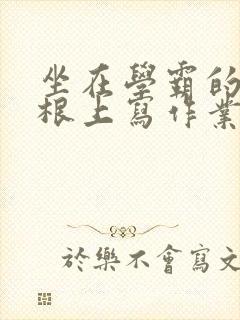 坐在學霸的
根上寫作業
於樂不會寫文